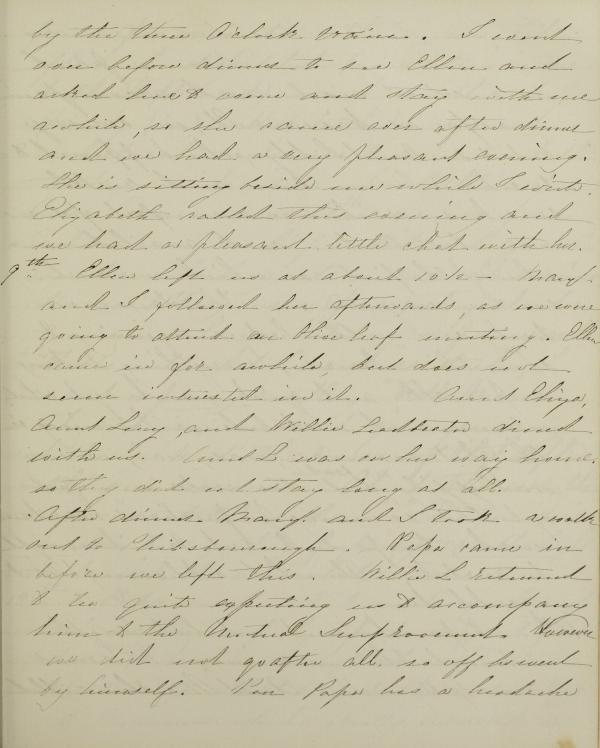 by the three O'clock train. I went
over before dinner to see Ellen and
asked her to come and stay with me
awhile, so she came over after dinner
and we had a very pleasant evening.
She is sitting beside me while I write.
Elizabeth called this evening and
we had a pleasant little chat with her.
9th Ellen left us at about 10 1/2 - Mary
and I followed her afterwards, as we were
going to attend an Olive leaf meeting. Ellen
came in for awhile, but does not
seem interested in it. Aunt Eliza,
Aunt Lucy, and Willie Leadbeater dined
with us. Aunt L was on her way home.
so they did not stay long at all.
After dinner Mary and I took a walk
out to. Papa came in
before we left this. Willie L returned
to tea quite expecting us to accompany
him to the Mutual Improvement. However
we did not go after all. so off he went
by himself. Poor Papa has a headache